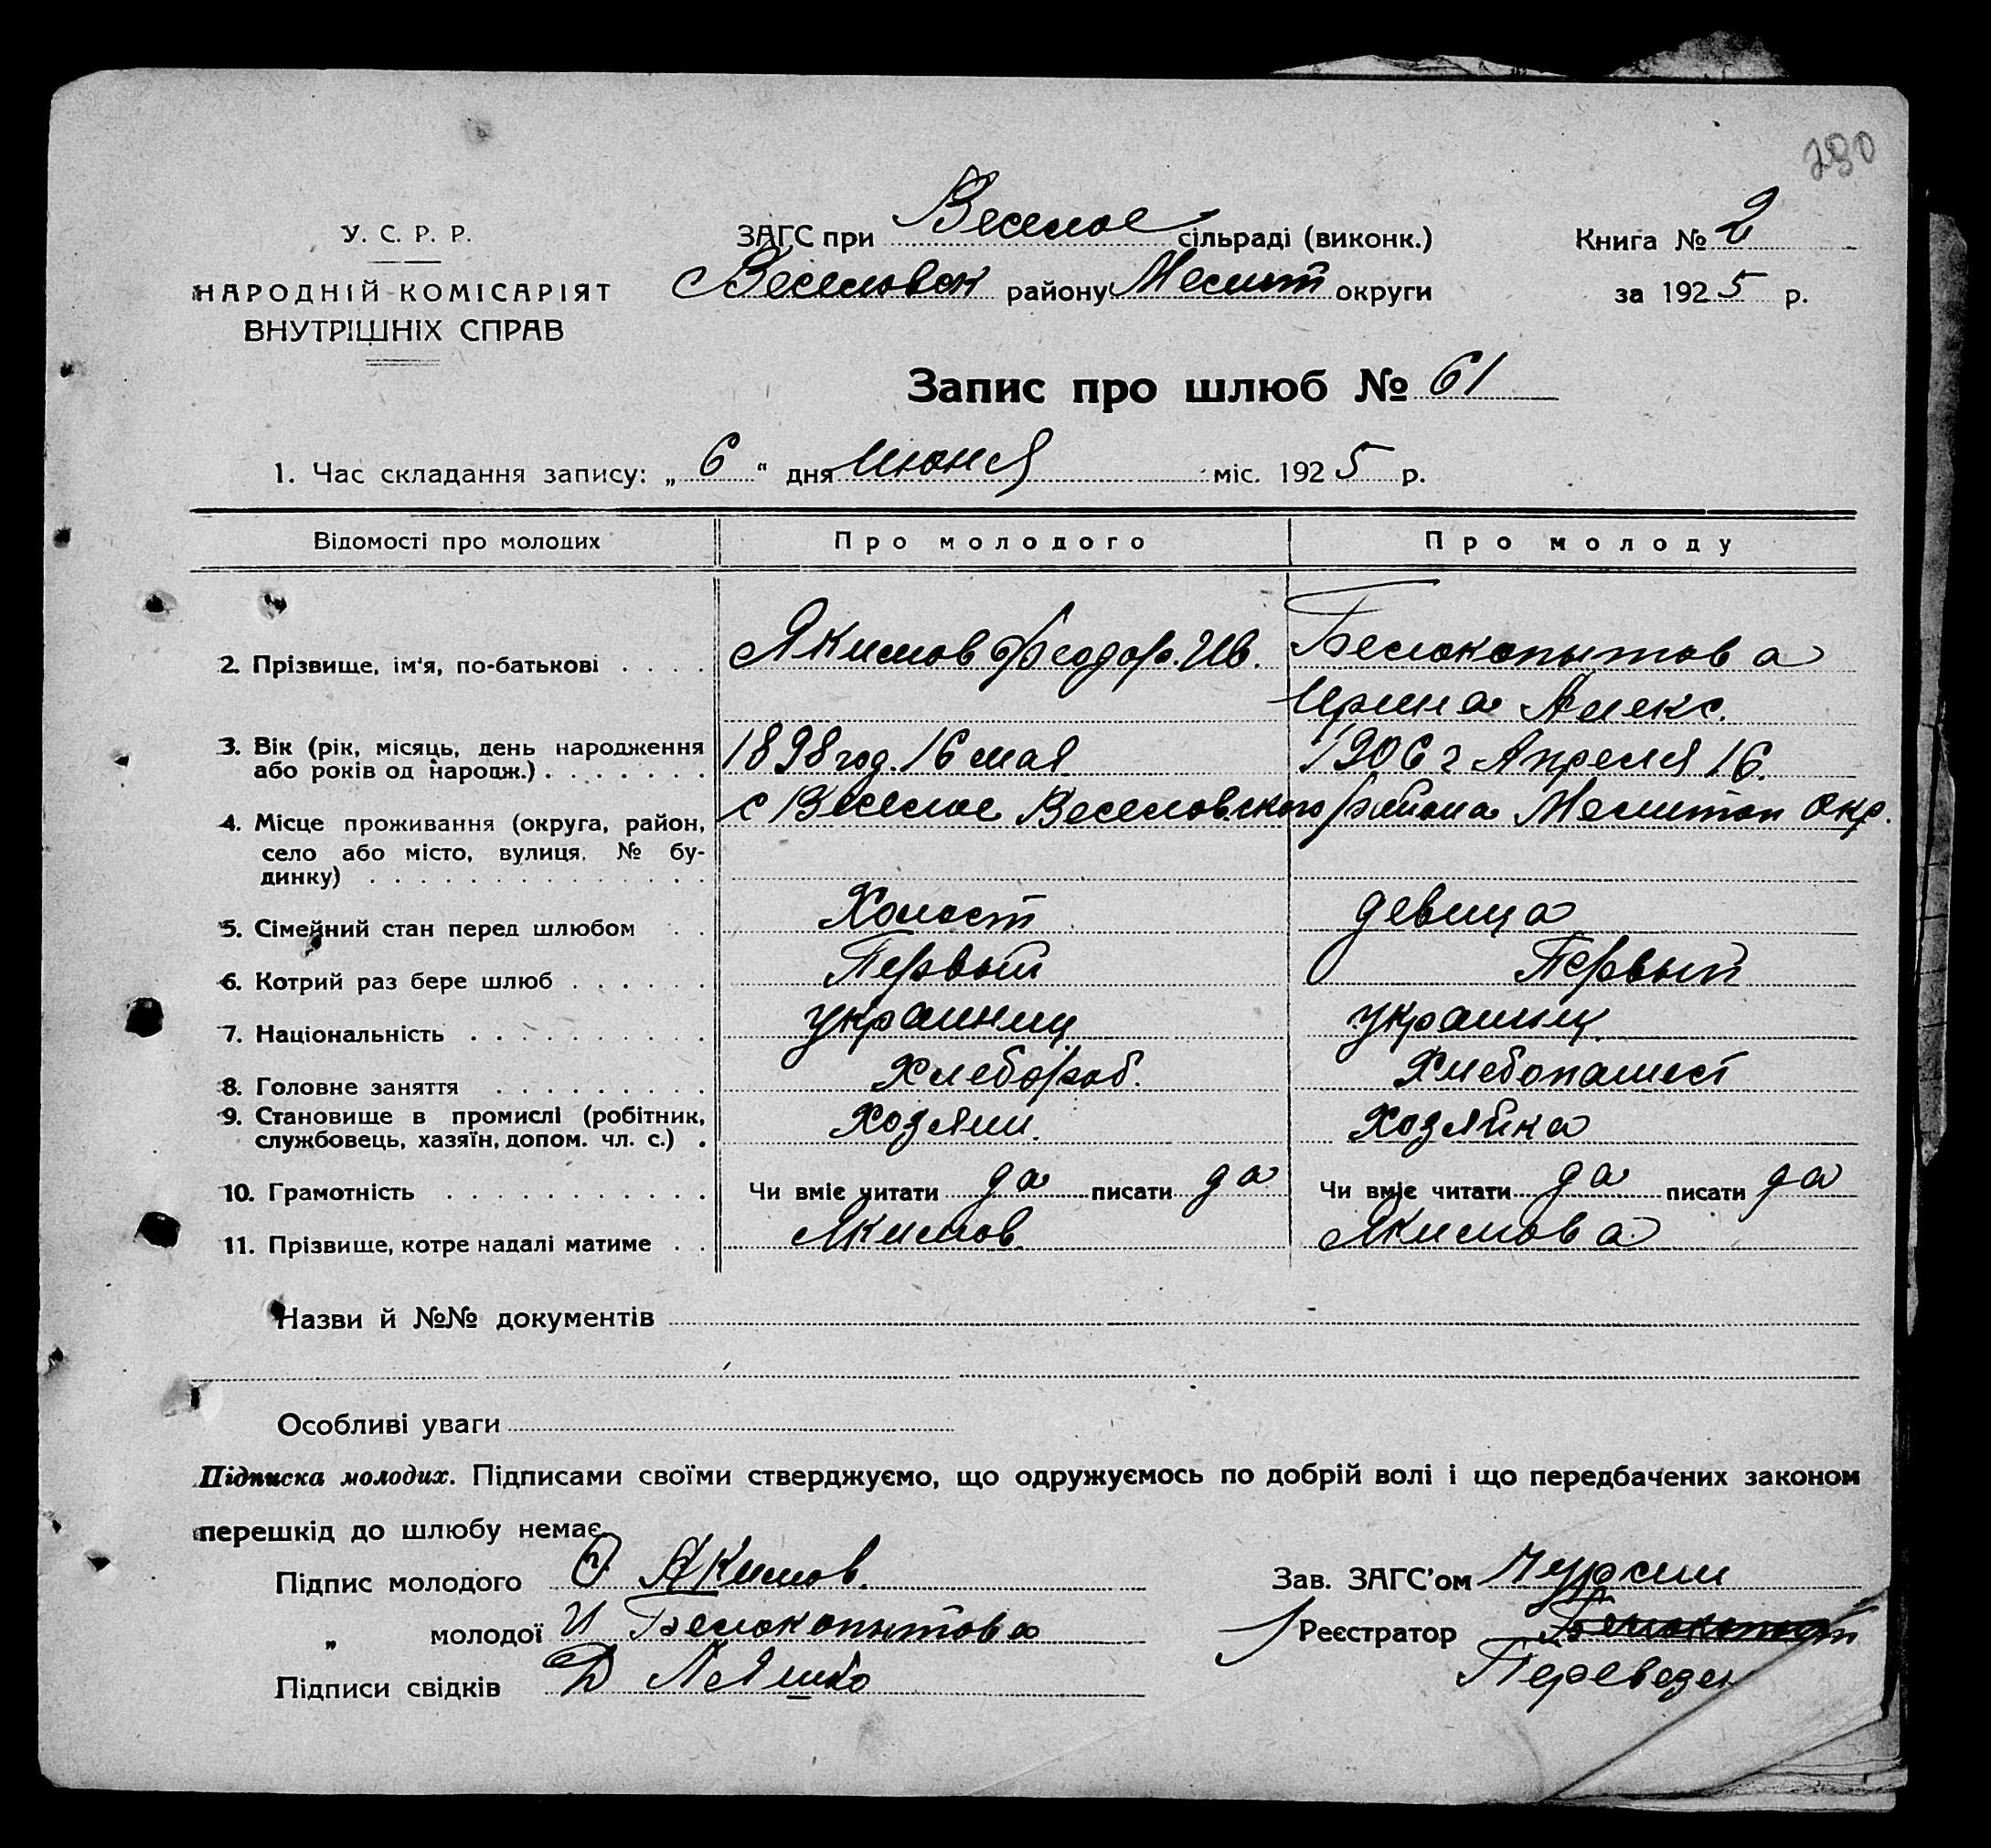 290
У. С. Р. Р.
НАРОДНІЙ КОМІСАРІЯТ
ВНУТРІШНІХ СПРАВ
ЗАГС при Веселое сільраді (виконк.)
Веселовск району Мелит округи
Книга № 2
за 1925 р.
Запис про шлюб № 61
1. Час складання запису: „ 6 “ дня Июня міс. 1925 р.
Відомості про молодих Про молодого Про молоду
2. Прізвище, ім'я, по-батькові . . . . Якимов Феодор. Ив. Белокопытова
Ирина Алекс.
3. Вік (рік, місяць, день народження 1898 год. 16 мая 1906 г Апреля 16.
або років од народж.) . . . . . . .
4. Місце проживання (округа, район, с Веселое Веселовского района Мелитоп окр.
село або місто, вулиця, № бу-
динку) . . . . . . . . . . . . . .
5. Сімейний стан перед шлюбом . . Холост девица
6. Котрий раз бере шлюб . . . . . . Первый Первый
7. Національність . . . . . . . . . . украинец украинц
8. Головне заняття . . . . . . . . . Хлебороб. Хлебопашест
9. Становище в промислі (робітник, Хозяин. Хозяйка
службовець, хазяїн, допом. чл. с.) .
10. Грамотність . . . . . . . . . . . Чи вміє читати да писати да Чи вміє читати да писати да
11. Прізвище, котре надалі матиме . . Якимов Якимова
Назви й №№ документів
Особливі уваги
Підписка молодих. Підписами своїми стверджуємо, що одружуємось по добрій волі і що передбачених законом
перешкід до шлюбу немає.
Підпис молодого Якимов. Зав. ЗАГС'ом Чурсин
„ молодої И Белокопытова Реєстратор
Підписи свідків Д Ляшко Перевезен